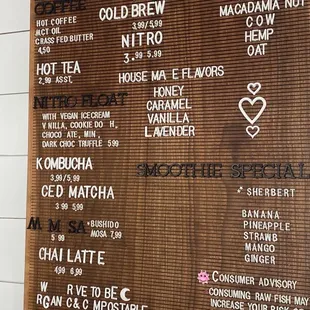 COFFEE
HOT COFFEE
MCT OIL
GRASS FED BUTTER
4.50
HOT TEA
2.99 ASST.
NITRO FLOAT
WITH VEGAN ICECREAM
V NILLA, COOKIE DO H,
CHOCO ATE, MIN,
DARK CHOC TRUFFLE 5.99
KOMBUCHA
3.99/5.99
CED MATCHA
3.99 5.99
M M SA *BUSHIDO
5.99 MOSA 7.99
CHAI LATTE
4.99 6.99
W RVE TO BE
RGAN C & C MPOSTABLE
COLD BREW
3.99/5.99
NITRO
3.99 5.99
HOUSE MA E FLAVORS
HONEY
CARAMEL
VANILLA
LAVENDER
MACADAMIA NUT
COW
HEMP
OAT
SMOOTHIE SPECIAL
SHERBERT
BANANA
PINEAPPLE
STRAWB
MANGO
GINGER
CONSUMER ADVISORY
CONSUMING RAW FISH MAY
INCREASE YOUR RISK OF